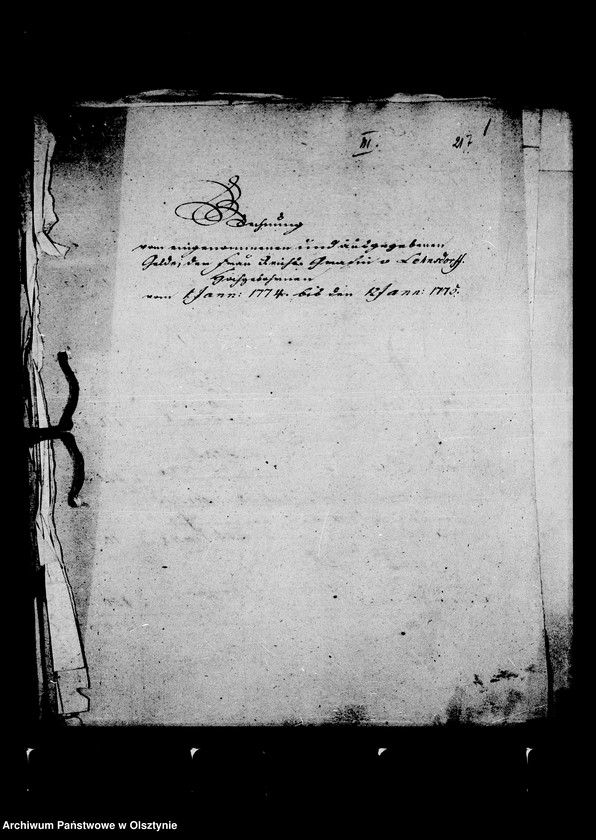 1
III. 217
Rechnung
vom eingenommenen und ausgegebenen
Gelde, der Frau Reichs Graefin v Lehndorff.
Hochgebohrnen
vom 1 Jann: 1774. bis den 1 Jann: 1775.
Archiwum Państwowe w Olsztynie